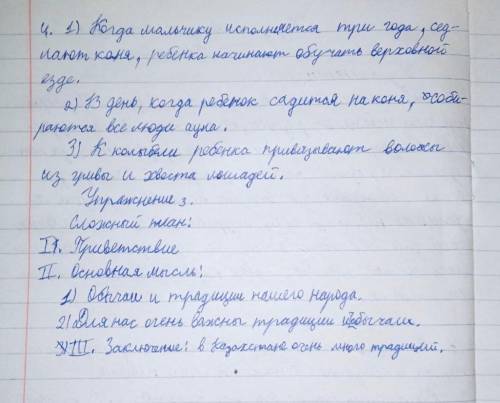 4. 1) Когда мальчику исполняется три года, сед-
лают коня, ребенка начинают обучать верховной
езде.
2) В день, когда ребенок садится на коня, соби-
раются все люди аула.
3) К колыбли ребенка привязывают волосы
из гривы и хвоста лошадей.
Упражнение 3.
Сложный план:
I. Приветствие
II. Основная мысль:
1) Обычаи и традиции нашего народа.
2) Для нас очень важны традиции и обычаи.
III. Заключение: в Казахстане очень много традиций.